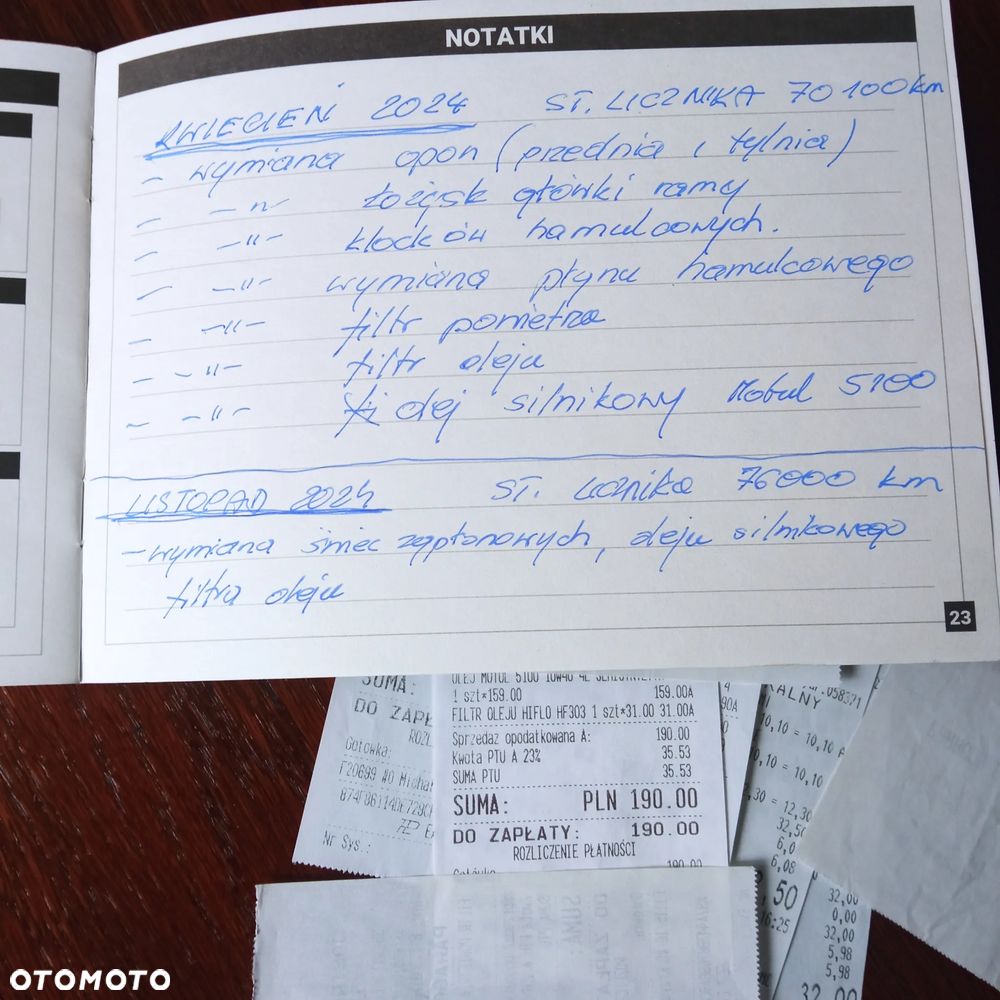 NOTATKI
KWIECIEŃ 2024 ST. LICZNIKA 70100 km
- wymiana opon (przednia i tylnia)
- -"- łożysk główki ramy
- -"- klocków hamulcowych.
- -"- wymiana płynu hamulcowego
- -"- filtr powietrza
- -"- filtr oleju
- -"- olej silnikowy Motul 5100
LISTOPAD 2024 ST. licznika 76000 km
- wymiana świec zapłonowych, oleju silnikowego
filtra oleju
23
SUMA:
DO ZAPŁ
ROZL
Gotówka:
F20699 #0 Michał
Nr Sys.:
OLEJ MOTUL 5100 10W40 4L
1 szt*159.00 159.00A
FILTR OLEJU HIFLO HF303 1 szt*31.00 31.00A
Sprzedaż opodatkowana A: 190.00
Kwota PTU A 23% 35.53
SUMA PTU 35.53
SUMA: PLN 190.00
DO ZAPŁATY: 190.00
ROZLICZENIE PŁATNOŚCI
Gotówka 190.00
90A
058371
KALNY
10,10 = 10,10 A
10,10 = 10,10
2,30 = 12,30
32,50
6,0
6,08
50
16:25
32,00
0,00
32,00
5,98
5,98
32,00
OTOMOTO